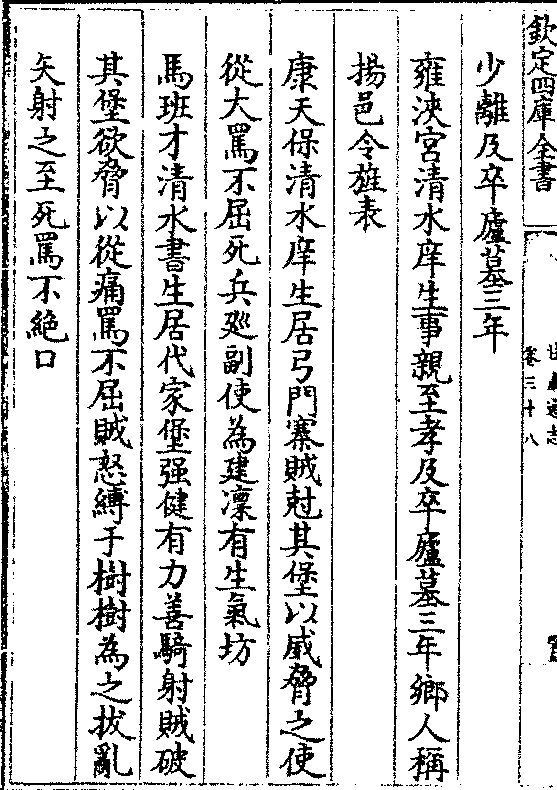 欽定四庫全書
卷三十八
少離及卒廬墓三年
雍浹宮清水庠生事親至孝及卒廬墓三年鄉人稱
揚邑令旌表
康天保清水庠生居弓門寨賊尅其堡以威脅之使
從大罵不屈死兵廵副使為建凛有生氣坊
馬班才清水書生居代家堡强健有力善騎射賊破
其堡欲脅以從痛罵不屈賊怒縛于樹樹為之拔亂
矢射之至死罵不絶口